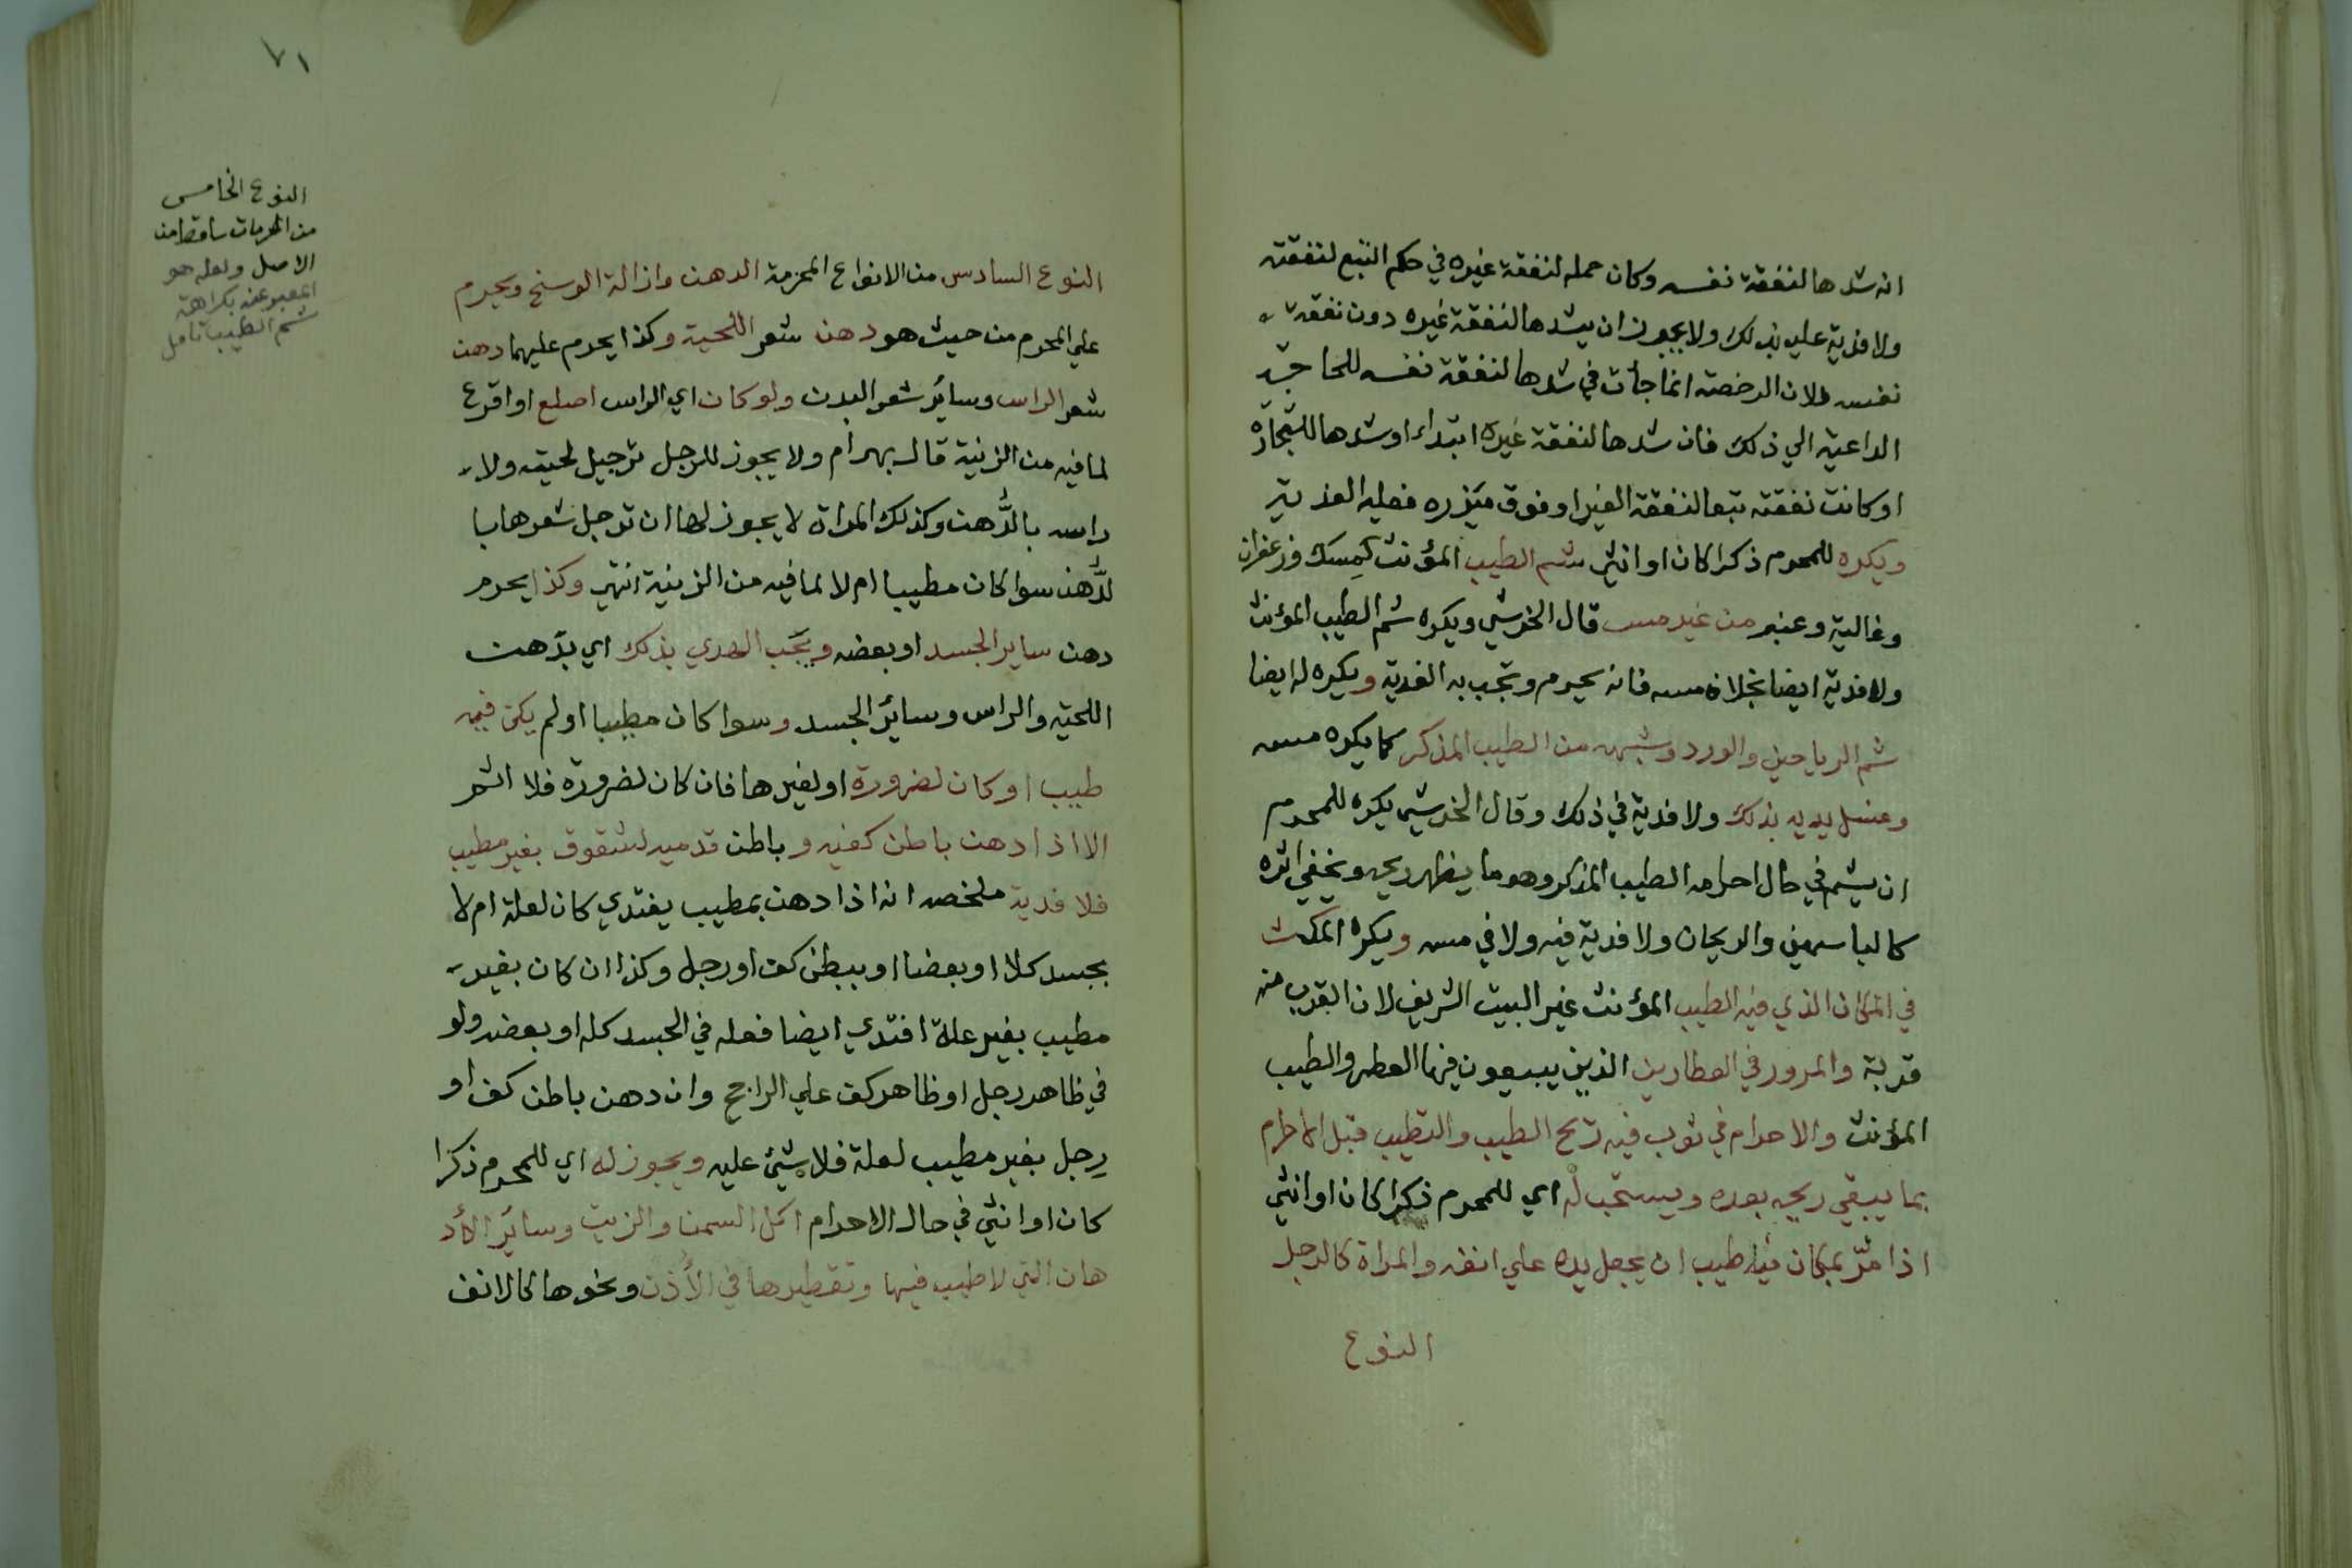 انه شدها لنفقة نفسه وكان حمله لنفقة غيره في حكم التبع لنفقته
ولا فدية عليه بذلك ولا يجوز ان يشدها لنفقة غيره دون نفقة
نفسه لان الرخصة انما جأت في شدها لنفقة نفسه للحاجة
الداعية الي ذلك فان شدها لنفقة غيره ابتداء او شدها للتجارة
او كانت نفقته تبعا لنفقة الغير او فوق ميزره فعليه الفدية
ويكره للمحرم ذكرا كان او انثي شم الطيب المؤنث كمسك وزعفران
وغالية وعنبر من غير مس قال الخرشي ويكره شم الطيب المؤنث
ولا فدية ايضا بخلاف مسه فانه يحرم وتجب به الفدية ويكره له ايضا
شم الرياحين والورد وشبهه من الطيب المذكر كما يكره مسه
وغسل يديه بذلك ولا فدية في ذلك وقال الخرشي يكره للمحرم
ان يشم في حال احرامه الطيب المذكر وهو ما يظهر ريحه ويخفي اثره
كالياسمين والريحان ولا فدية فيه ولا في مسه ويكره المكث
في المكان الذي فيه الطيب المؤنث غير البيت الشريف لان القرب منه
قربة والمرور في العطارين الذين يبيعون فيها العطر والطيب
المؤنث والاحرام في ثوب فيه ريح الطيب والتطيب قبل الاحرام
بما يبقي ريحه بعده ويستحب له اي للمحرم ذكرا كان او انثي
اذا مرّ بمكان فيه طيب ان يجعل يده علي انفه والمراة كالرجل
النوع
٧١
النوع الخامس
من المحرمات ساقط من
الاصل ولعله هو
المعبر عنه بكراهة
شم الطيب تامل
النوع السادس من الانواع المحرمة الدهن وازالة الوسخ ويحرم
علي المحرم من حيث هو دهن شعر اللحية وكذا يحرم عليهما دهن
شعر الراس وسائر شعر البدن ولو كان اي الراس اصلع او اقرع
لما فيه من الزينة قال بهرام ولا يجوز للرجل ترجيل لحيته ولا
راسه بالدُّهن وكذلك المراة لا يجوز لها ان ترجل شعرها با
لدُّهن سوا كان مطيبا ام لا لما فيه من الزينة انتهي وكذا يحرم
دهن ساير الجسد او بعضه ويجب الهدي بذلك اي بدَهن
اللحية والراس وسائر الجسد وسوا كان مطيبا او لم يكن فيه
طيب او كان لضرورة او لغيرها فان كان لضرورة فلا اثم
الا اذا دهن باطن كفيه وباطن قدميه لشقوق بغير مطيب
فلا فدية ملخصه انه اذا دهن بمطيب يفتدي كان لعلة ام لا
بجسد كلا او بعضا او ببطن كف او رجل وكذا ان كان بغير
مطيب بغير علة افتدي ايضا فعله في الجسد كله او بعضه ولو
في ظاهر رجل او ظاهر كف علي الراجح وان دهن باطن كف او
رِجل بغير مطيب لعلة فلا شيئ عليه ويجوز له اي للمحرم ذكرا
كان او انثي في حال الاحرام اكل السمن والزيت وسائر الأد
هان التي لا طيب فيها وتقطيرها في الأُذن ونحوها كالانف